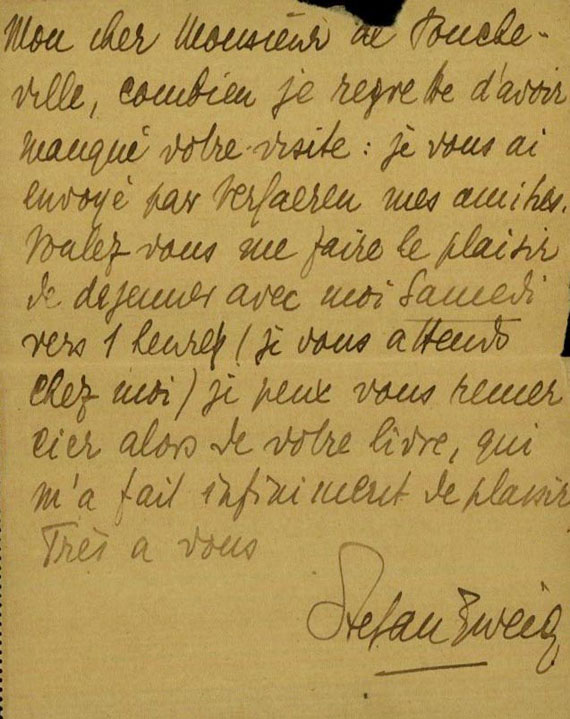 Mon cher Monsieur de Pouche-
ville, combien je regrette d'avoir
manqué votre visite : je vous ai
envoyé par Verhaeren mes amitiés.
Voulez vous me faire le plaisir
de dejeuner avec moi Samedi
vers 1 heures (je vous attends
chez moi) je peux vous remer
cier alors de votre livre, qui
m'a fait infiniment de plaisir
Très a vous
Stefan Zweig